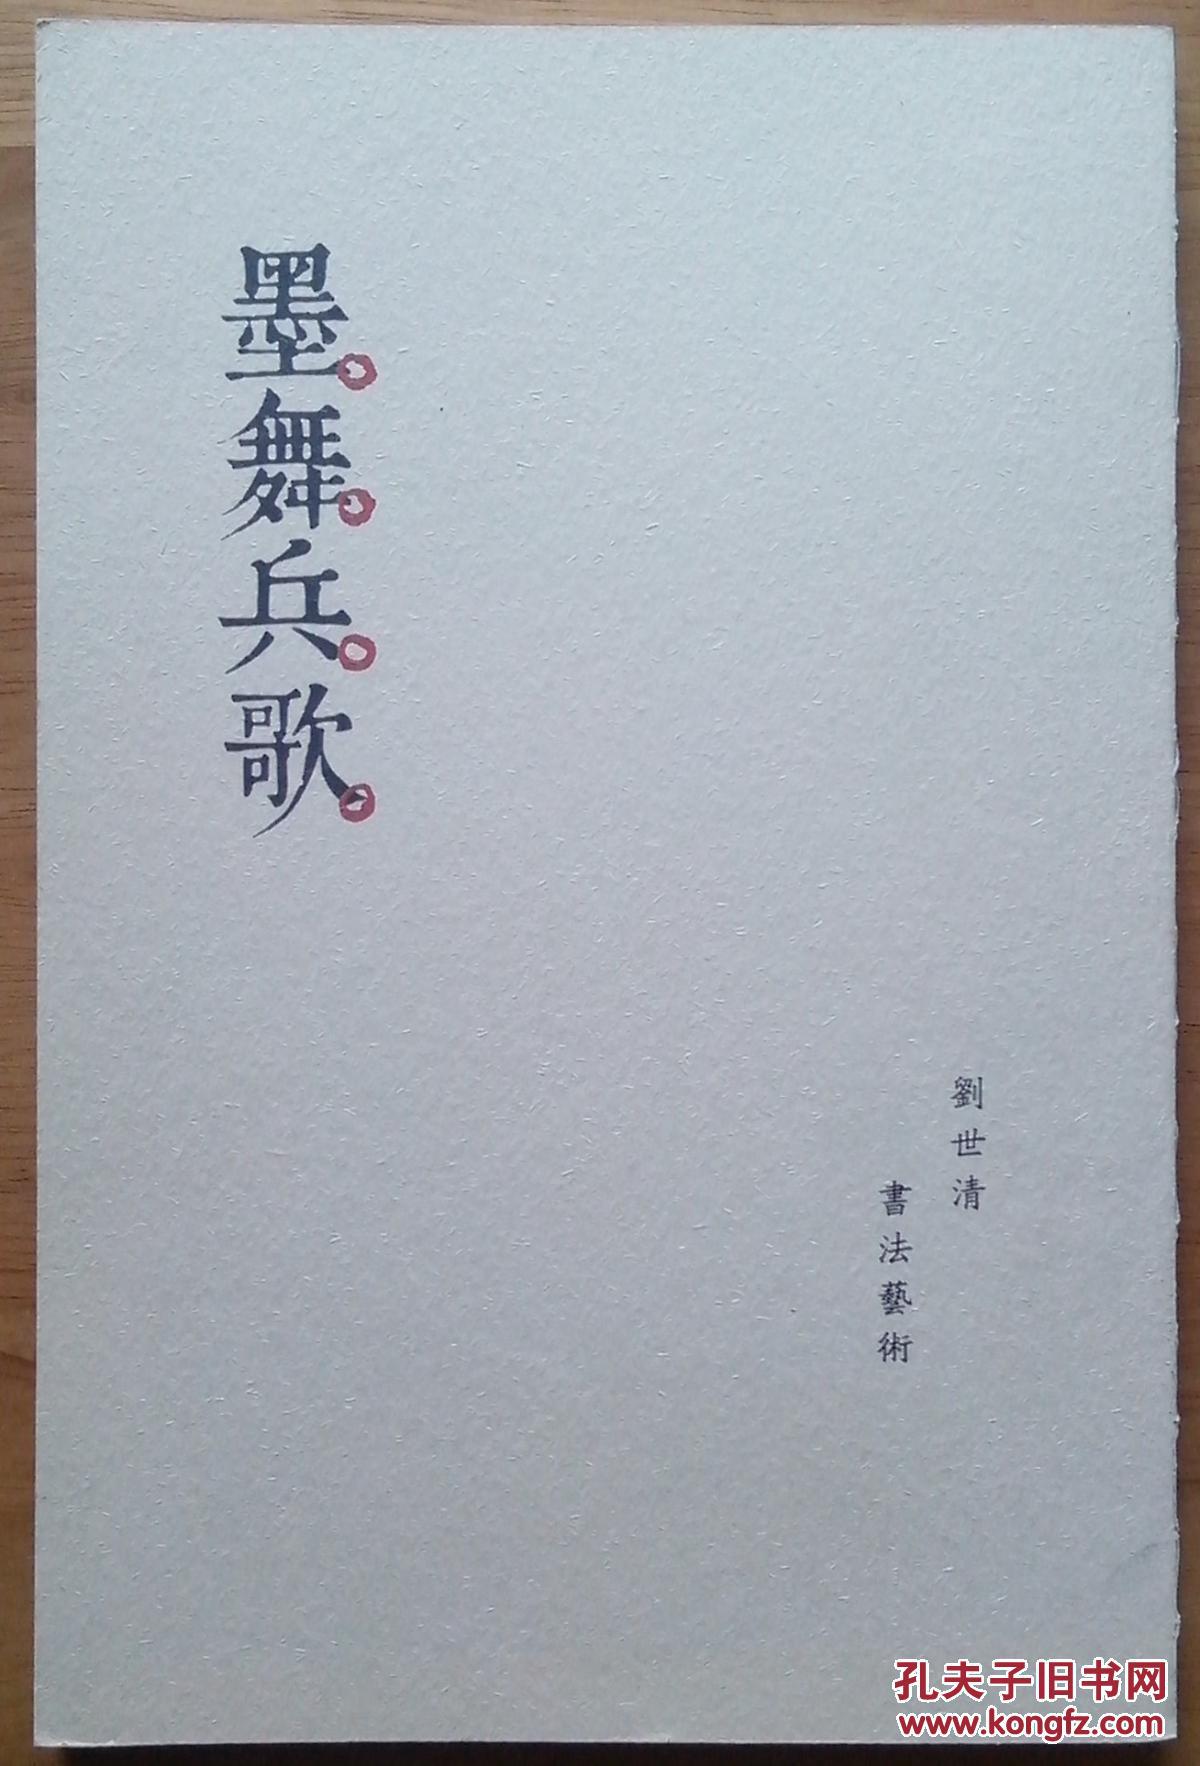 墨舞兵歌
劉世清
書法藝術
孔夫子旧书网
www.kongfz.com